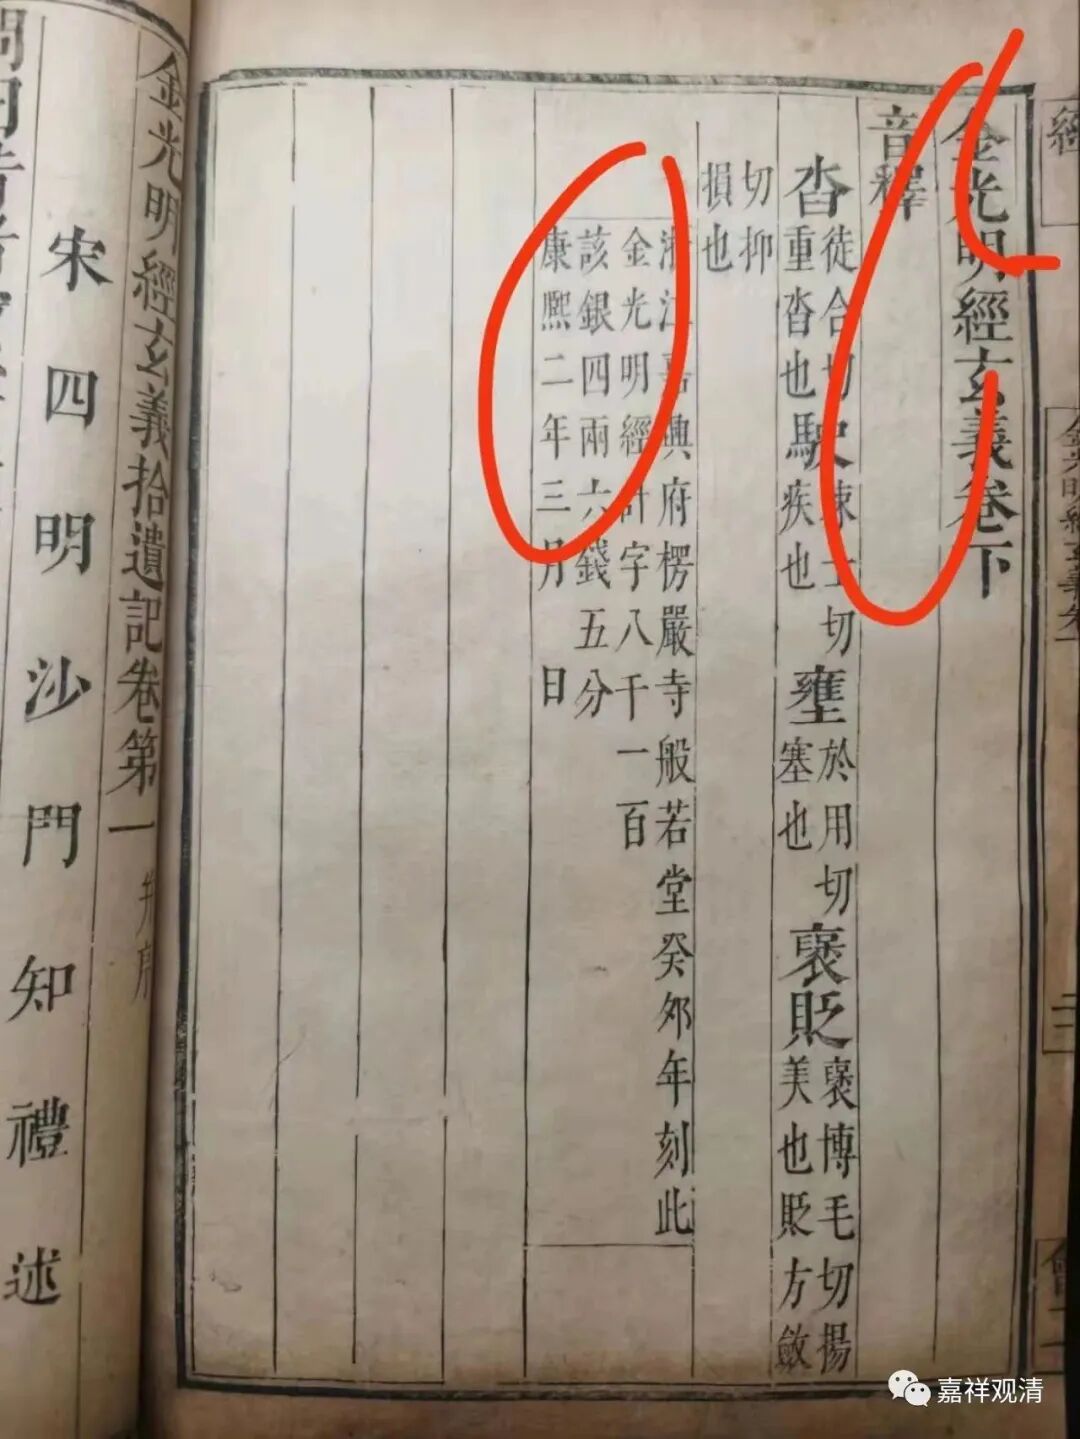 金光明經玄義卷下
音釋
沓徒合切重沓也駛疎士切疾也壅於用切塞也褒貶褒博毛切揚美也貶方斂
切抑損也
浙江嘉興府楞嚴寺般若堂癸夘年刻此
金光明經計字八千一百
該銀四兩六錢五分
康熙二年三月 日
金光明經玄義拾遺記卷第一
宋四明沙門知禮述
嘉祥观清